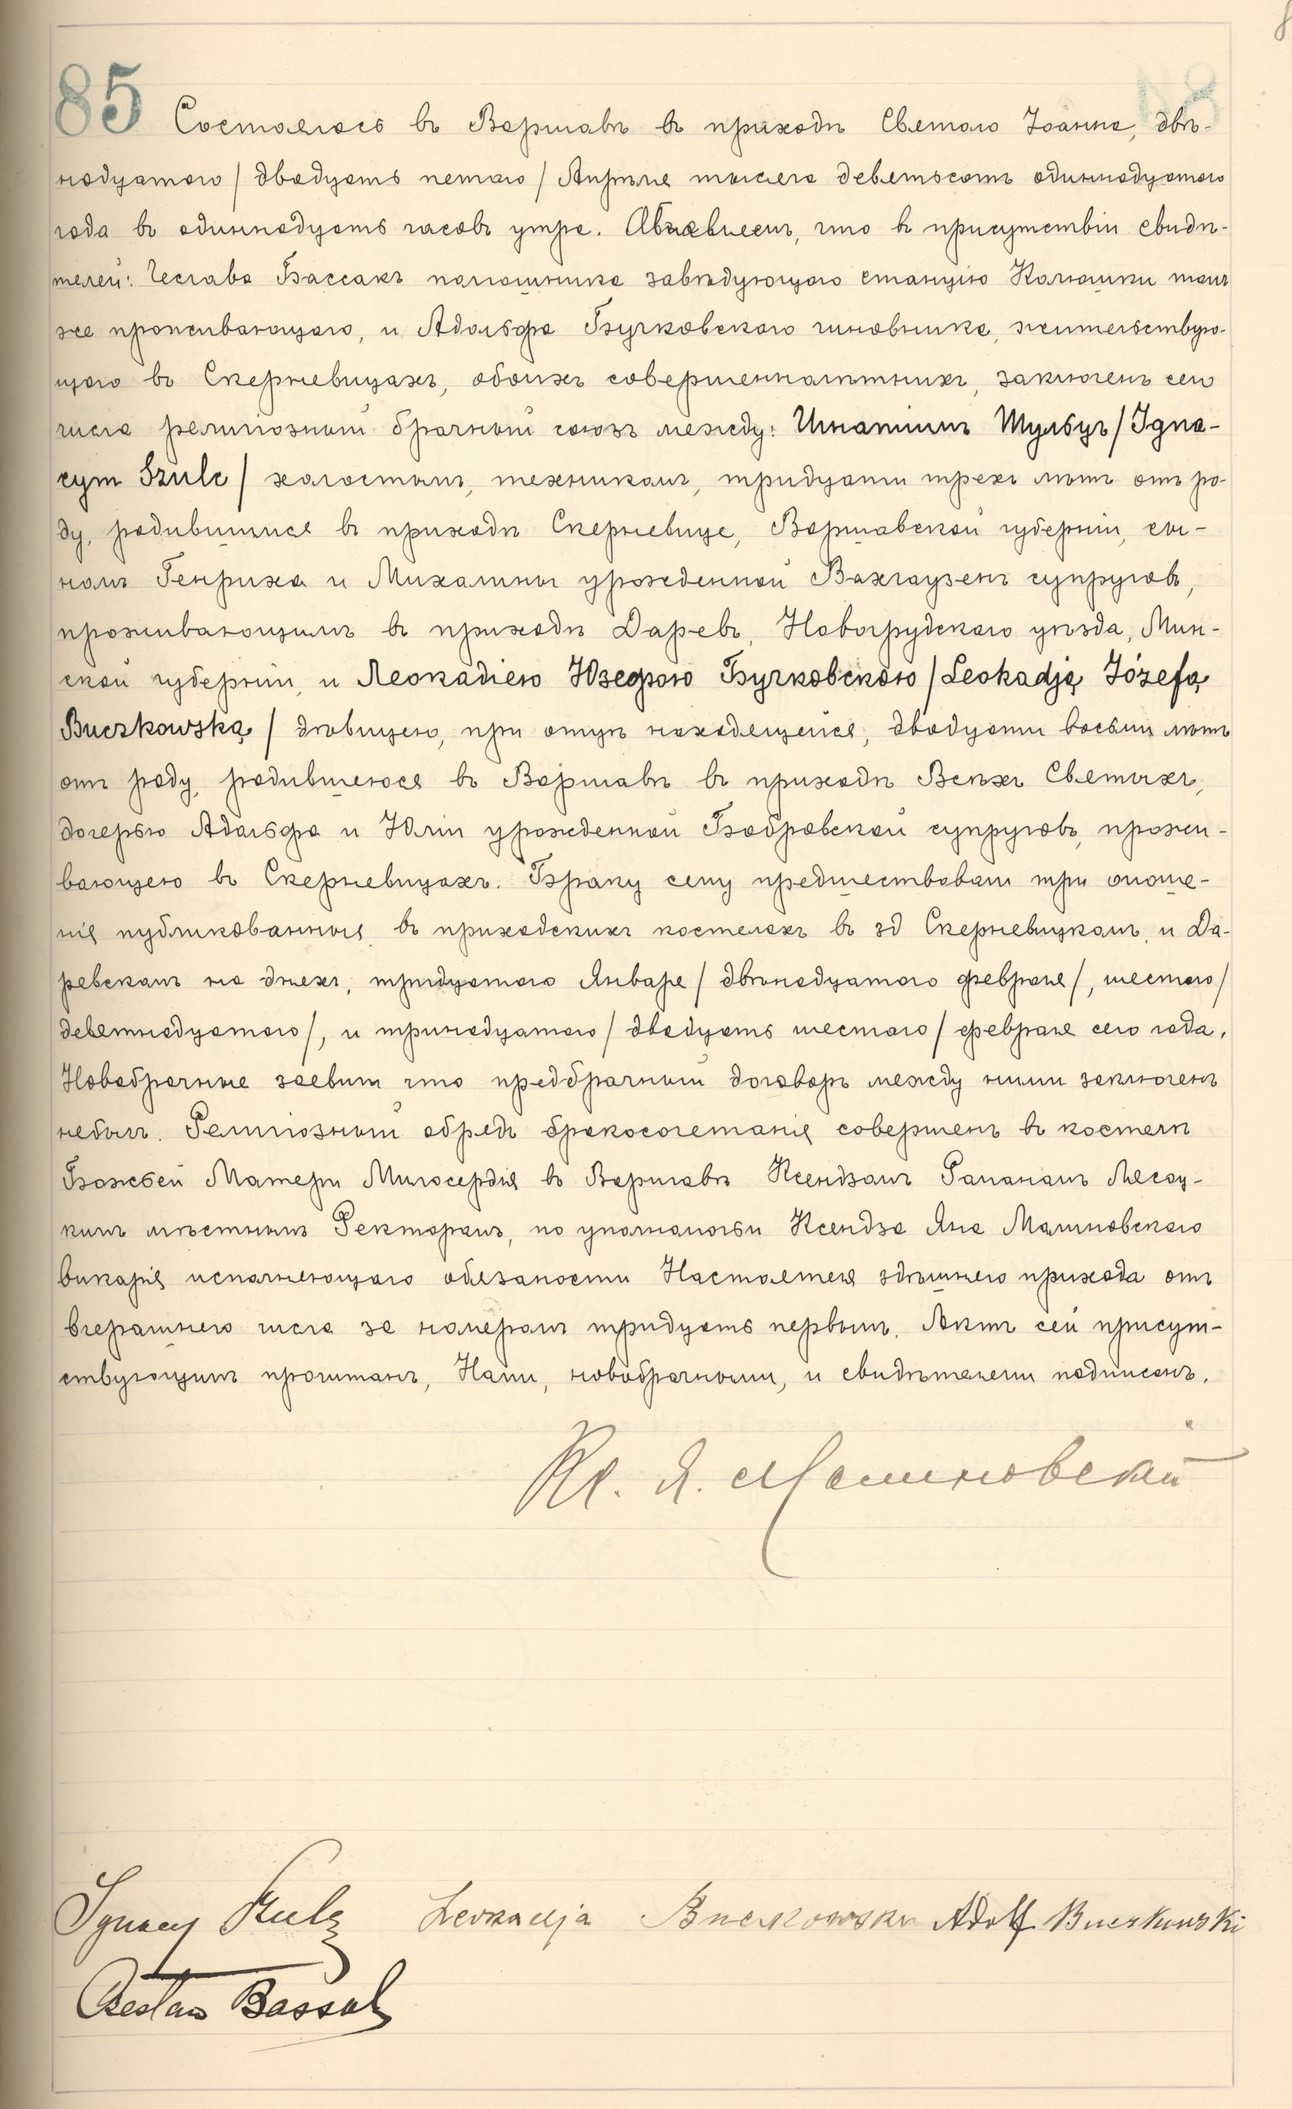 85 Состоялось въ Варшавѣ въ приходѣ Святого Іоанна, двѣ-
надцатого / двадцать пятаго / Апрѣля тысяча девятьсотъ одиннадцатого
года въ одиннадцать часовъ утра. Объявляемъ, что въ присутствіи свидѣ-
телей: Чеслава Бассакъ помощника завѣдующаго станціею Колюшки тамъ
же проживающаго, и Адольфа Бучковскаго чиновника, жительствую-
щаго въ Скерневицахъ, обоихъ совершеннолѣтнихъ, заключенъ сего
числа религіозный брачный союзъ между: Игнатіемъ Шульцъ / Igna-
cym Szulc / холостымъ, техникомъ, тридцати трехъ лѣтъ отъ ро-
ду, родившимся въ приходѣ Скерневице, Варшавской губерніи, сы-
номъ Генриха и Михалины урожденной Вахгаузенъ супруговъ,
проживающимъ въ приходѣ Даревъ, Новогрудскаго уѣзда, Мин-
ской губерніи, и Леокадіею Юзефою Бучковскою / Leokadją Józefą
Buczkowską / дѣвицею, при отцѣ находящейся, двадцати восьми лѣтъ
отъ роду, родившеюся въ Варшавѣ въ приходѣ Всѣхъ Святыхъ,
дочерью Адольфа и Юліи урожденной Бобровской супруговъ, прожи-
вающею въ Скерневицахъ. Браку сему предшествовали три оглаше-
нія публикованныя въ приходскихъ костелахъ въ Скерневицкомъ и Да-
ревскомъ на дняхъ, тридцатого Января / двѣнадцатого февраля /, шестого /
девятнадцатого /, и тринадцатого / двадцать шестого / февраля сего года.
Новобрачные заявили что предбрачный договоръ между ними заключенъ
небылъ. Религіозный обрядъ бракосочетанія совершенъ въ костелѣ
Божьей Матери Милосердія въ Варшавѣ Ксендзомъ Романомъ
мѣстнымъ Ректоромъ, по уполномочьи Ксендза Яна Малиновскаго
викарія исполняющаго обязаности Настоятеля здѣшнего прихода отъ
вчерашнего числа за номеромъ тридцать первымъ. Актъ сей присут-
ствующимъ прочитанъ, Нами, новобрачными, и свидѣтелями подписанъ.
Кс. Я. Малиновскій
Ignacy Szulc Leokadja Buczkowska Adolf Buczkowski
Czesław Bassak